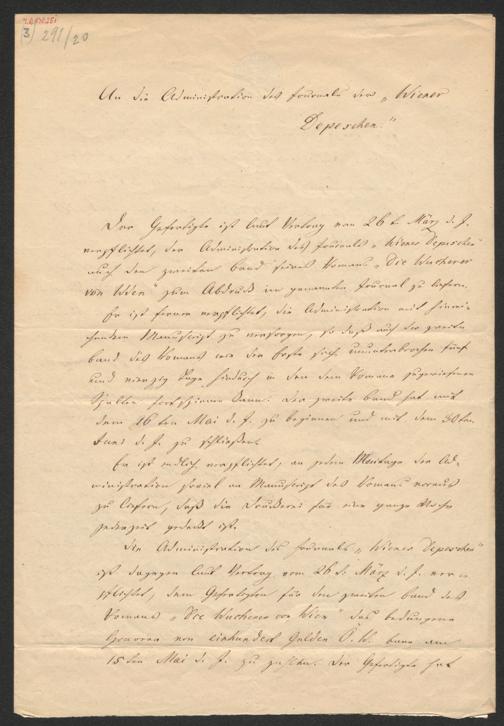 (3) 291/20
An die Administration des Journals der „Wiener
Depeschen."
Der Gefertigte ist laut Vertrag vom 26t. März d. J.
verpflichtet, der Administration des Journals „Wiener Depeschen"
auch den zweiten Band seines Romans „Die Wucherer
von Wien" zum Abdruck im genannten Journal zu liefern.
Er ist ferner verpflichtet, die Administration mit hinrei-
chendem Manuscript zu versorgen, so daß auch der zweite
Band des Romans wie der Erste sich ununterbrochen fünf
und vierzig Tage hindurch in den dem Romane zugewiesenen
Spalten fortspinnen kann. Der zweite Band hat mit
dem 16ten Mai d. J. zu beginnen und mit dem 30ten
Juni d. J. zu schließen.
Er ist endlich verpflichtet, an jedem Montage der Ad-
ministration soviel an Manuscript des Romans voraus
zu liefern, daß die Druckerei für eine ganze Woche
jederzeit gedeckt ist.
Die Administration des Journals „Wiener Depeschen"
ist dagegen laut Vertrag vom 26t. März d. J. ver-
pflichtet, dem Gefertigten für den zweiten Band des
Romans „Die Wucherer von Wien" das bedungene
Honorar von einhundert Gulden Ö. W. baar am
15ten Mai d. J. zu zahlen. Der Gefertigte hat